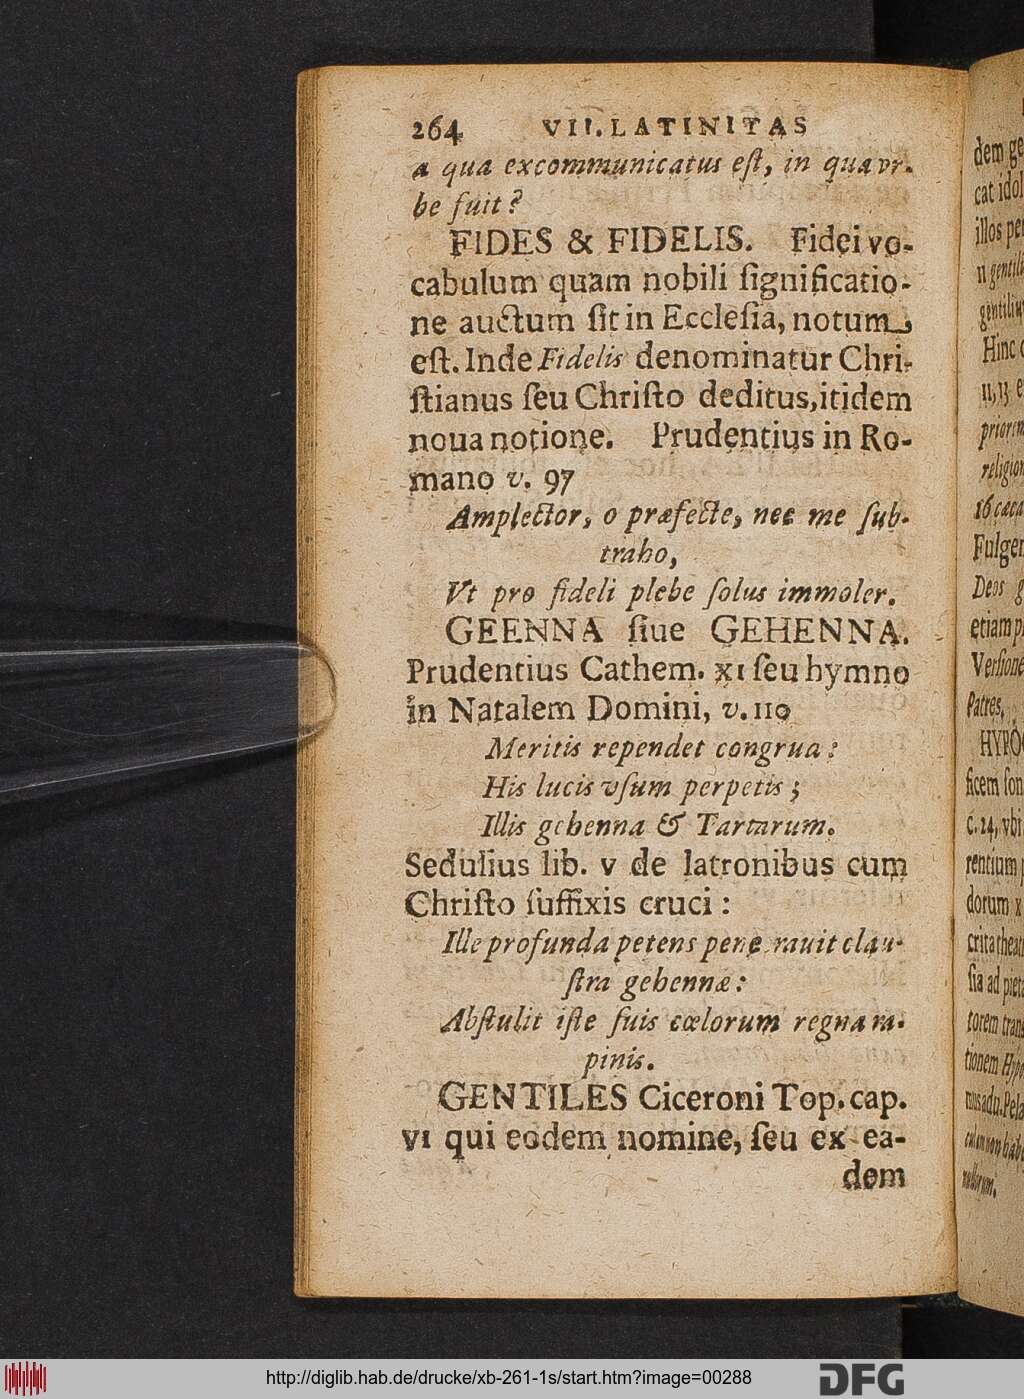 264 VII. LATINITAS
a qua excommunicatus eſt, in qua vr-
be fuit?
FIDES & FIDELIS. Fidei vo-
cabulum quam nobili ſignificatio-
ne auctum ſit in Eccleſia, notum
eſt. Inde Fidelis denominatur Chri-
ſtianus ſeu Chriſto deditus, itidem
noua notione. Prudentius in Ro-
mano v. 97
Amplector, o præfecte, nec me ſub-
traho,
Vt pro fideli plebe ſolus immoler.
GEENNA ſiue GEHENNA.
Prudentius Cathem. XI ſeu hymno
in Natalem Domini, v. 110
Meritis rependet congrua:
His lucis vſum perpetis;
Illis gehenna & Tartarum.
Sedulius lib. V de latronibus cum
Chriſto ſuffixis cruci:
Ille profunda petens penetrauit clau-
ſtra gehennæ:
Abſtulit iſte ſuis cœlorum regna ra-
pinis.
GENTILES Ciceroni Top. cap.
VI qui eodem nomine, ſeu ex ea-
dem
dem ge
cat idol
illos pe
gentiliu
Hinc
11, 13 e
priorem
religion
16 cæca
Fulgen
Deos g
etiam p
Verſione
Patres,
HYPOC
ficem ſon
c. 24, vbi
rentium
dorum x
crita theat
ſia ad piet
torem tran
tionem Hypo
http://diglib.hab.de/drucke/xb-261-1s/start.htm?image=00288
DFG